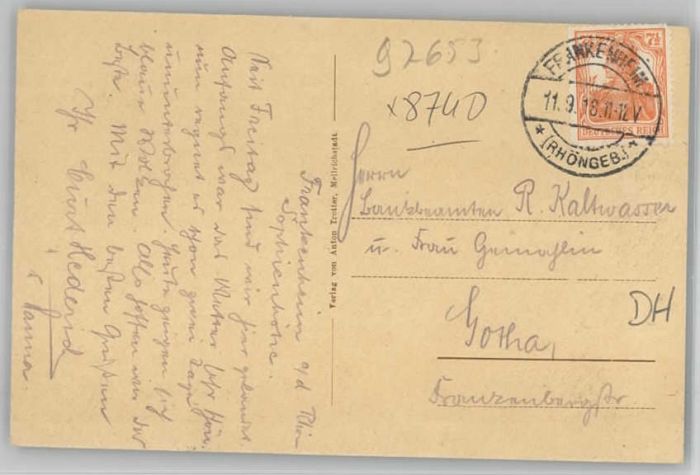 Frankenheim a/d Rhön
Sophienhöhe.
Seit Freitag sind wir hier gelandet.
Anfangs war das Wetter sehr schön,
nun regnet es schon zwei Tage
ununterbrochen. Heute zeigen sich
blaue Wolken. Also hoffen wir das
Beste. Mit den besten Grüßen
Ihr Curt Hederich
u. Hanna.
Verlag von Anton Trotter, Mellrichstadt.
92653
x8740
7½
DEUTSCHES REICH
FRANKENHEIM
11.9.18.11-12V
(RHÖNGEB.)
Herrn
Bankbeamten R. Kaltwasser
u. Frau Gemahlin
Gotha,
DH
Franzenbergstr